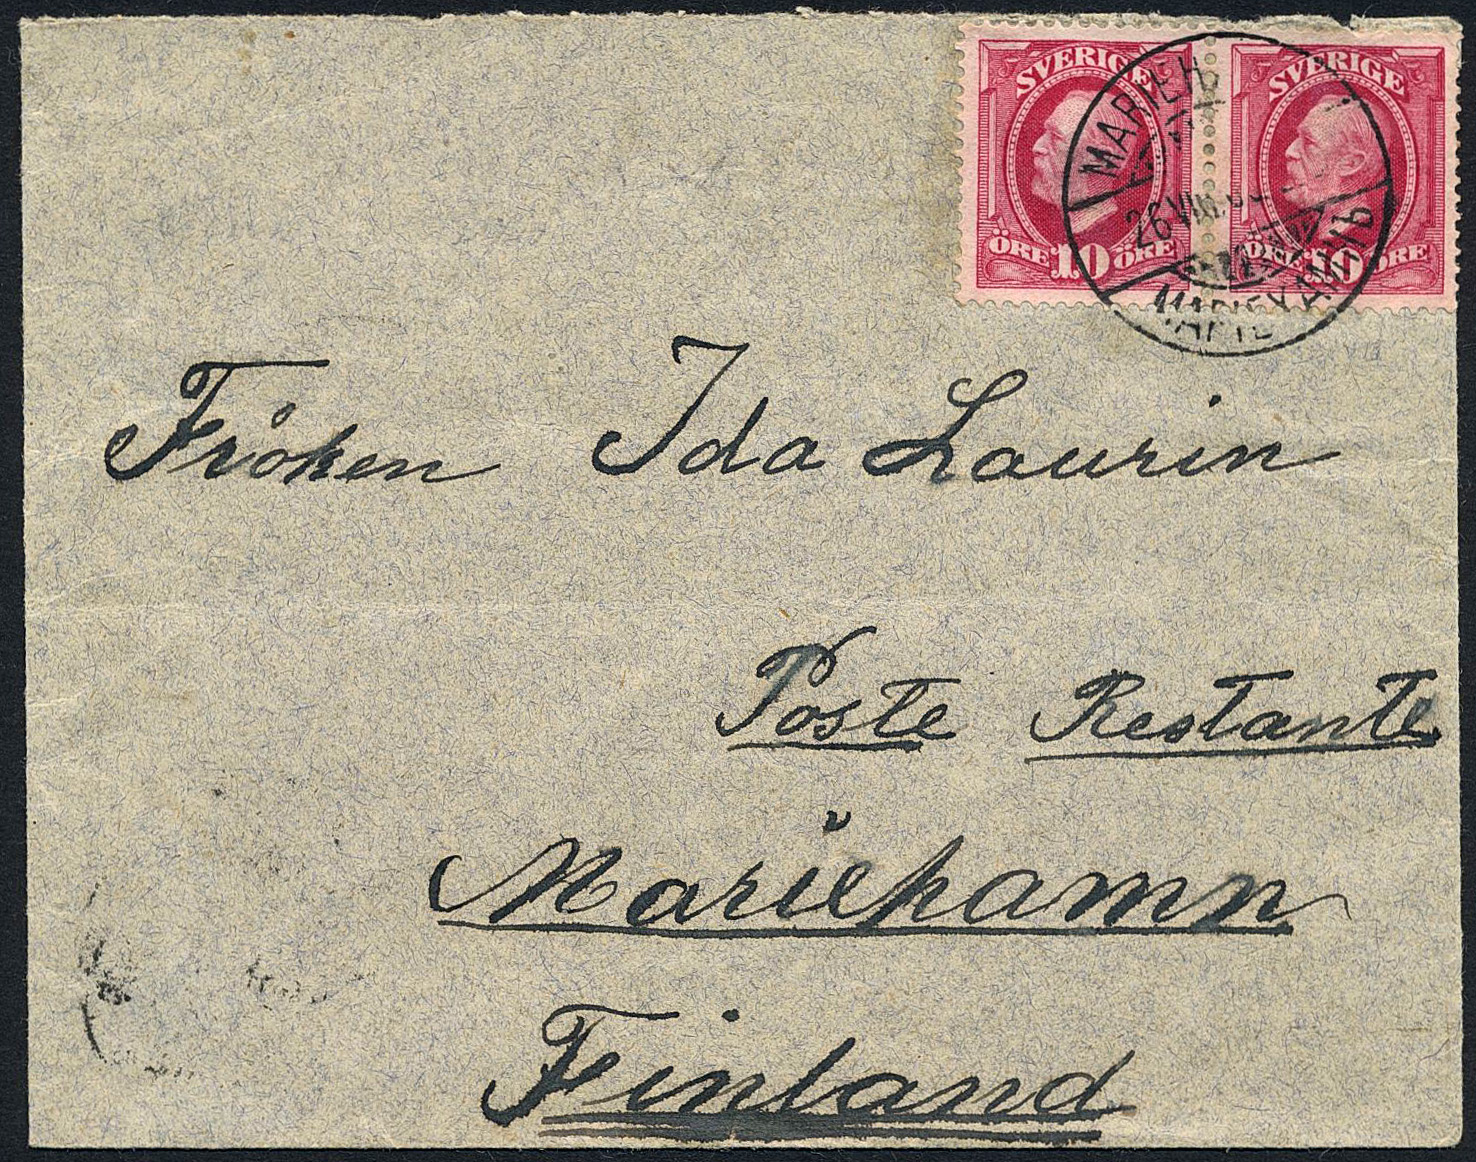 SVERIGE SVERIGE
ÖRE 10 ÖRE ÖRE 10 ÖRE
26 VIII
Fröken Ida Laurin
Poste Restante
Mariehamn
Finland